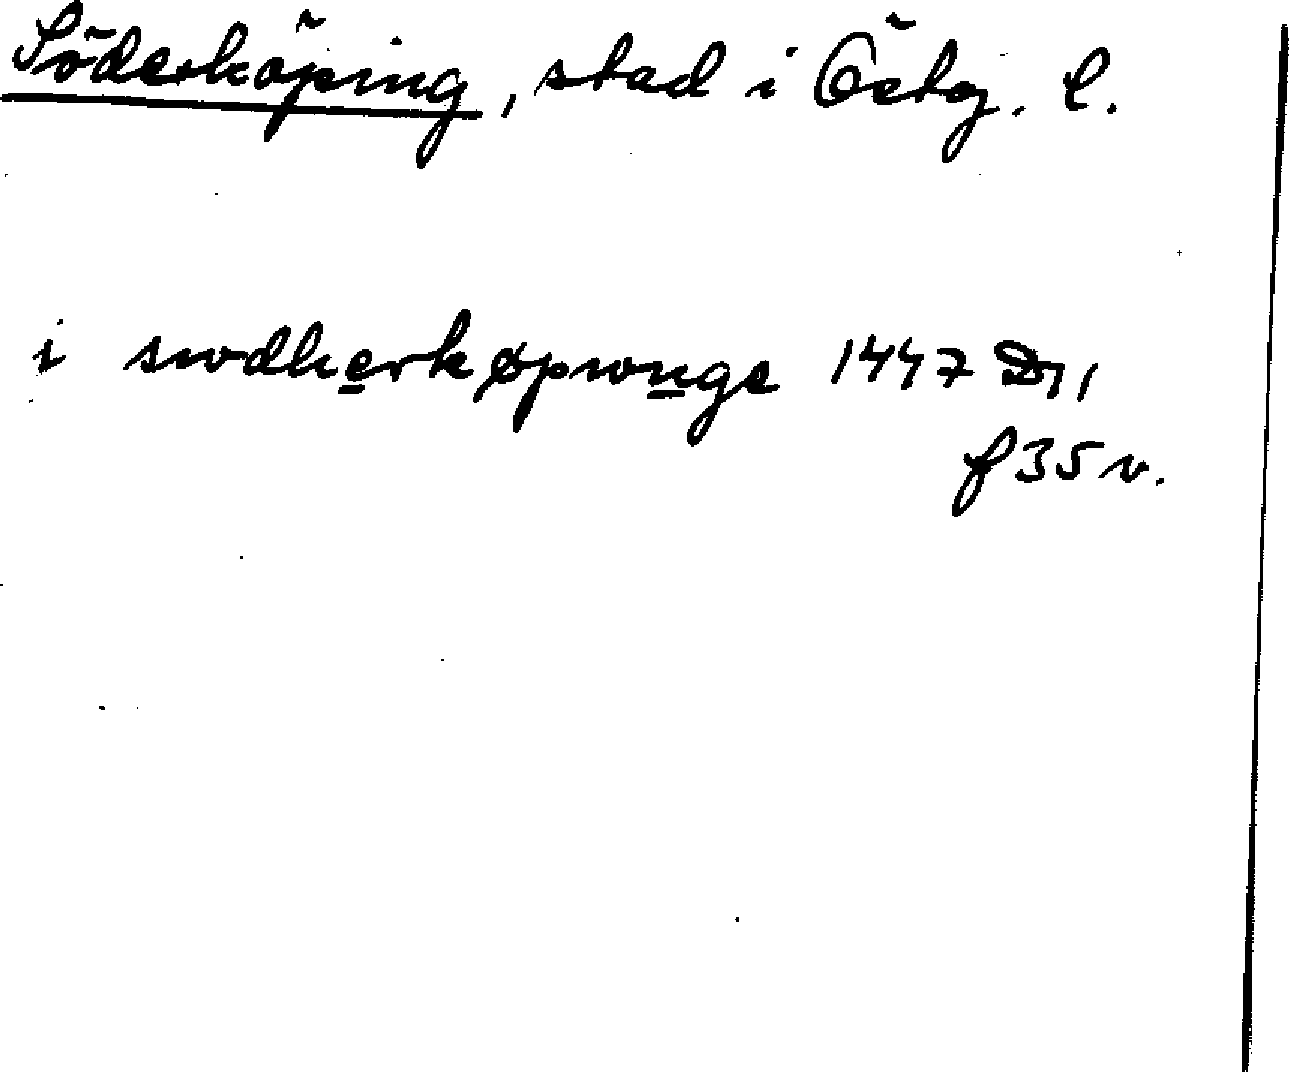 Söderköping, stad i Östg. l.
i swdherkøpwnge 1447 D11
f 35 v.